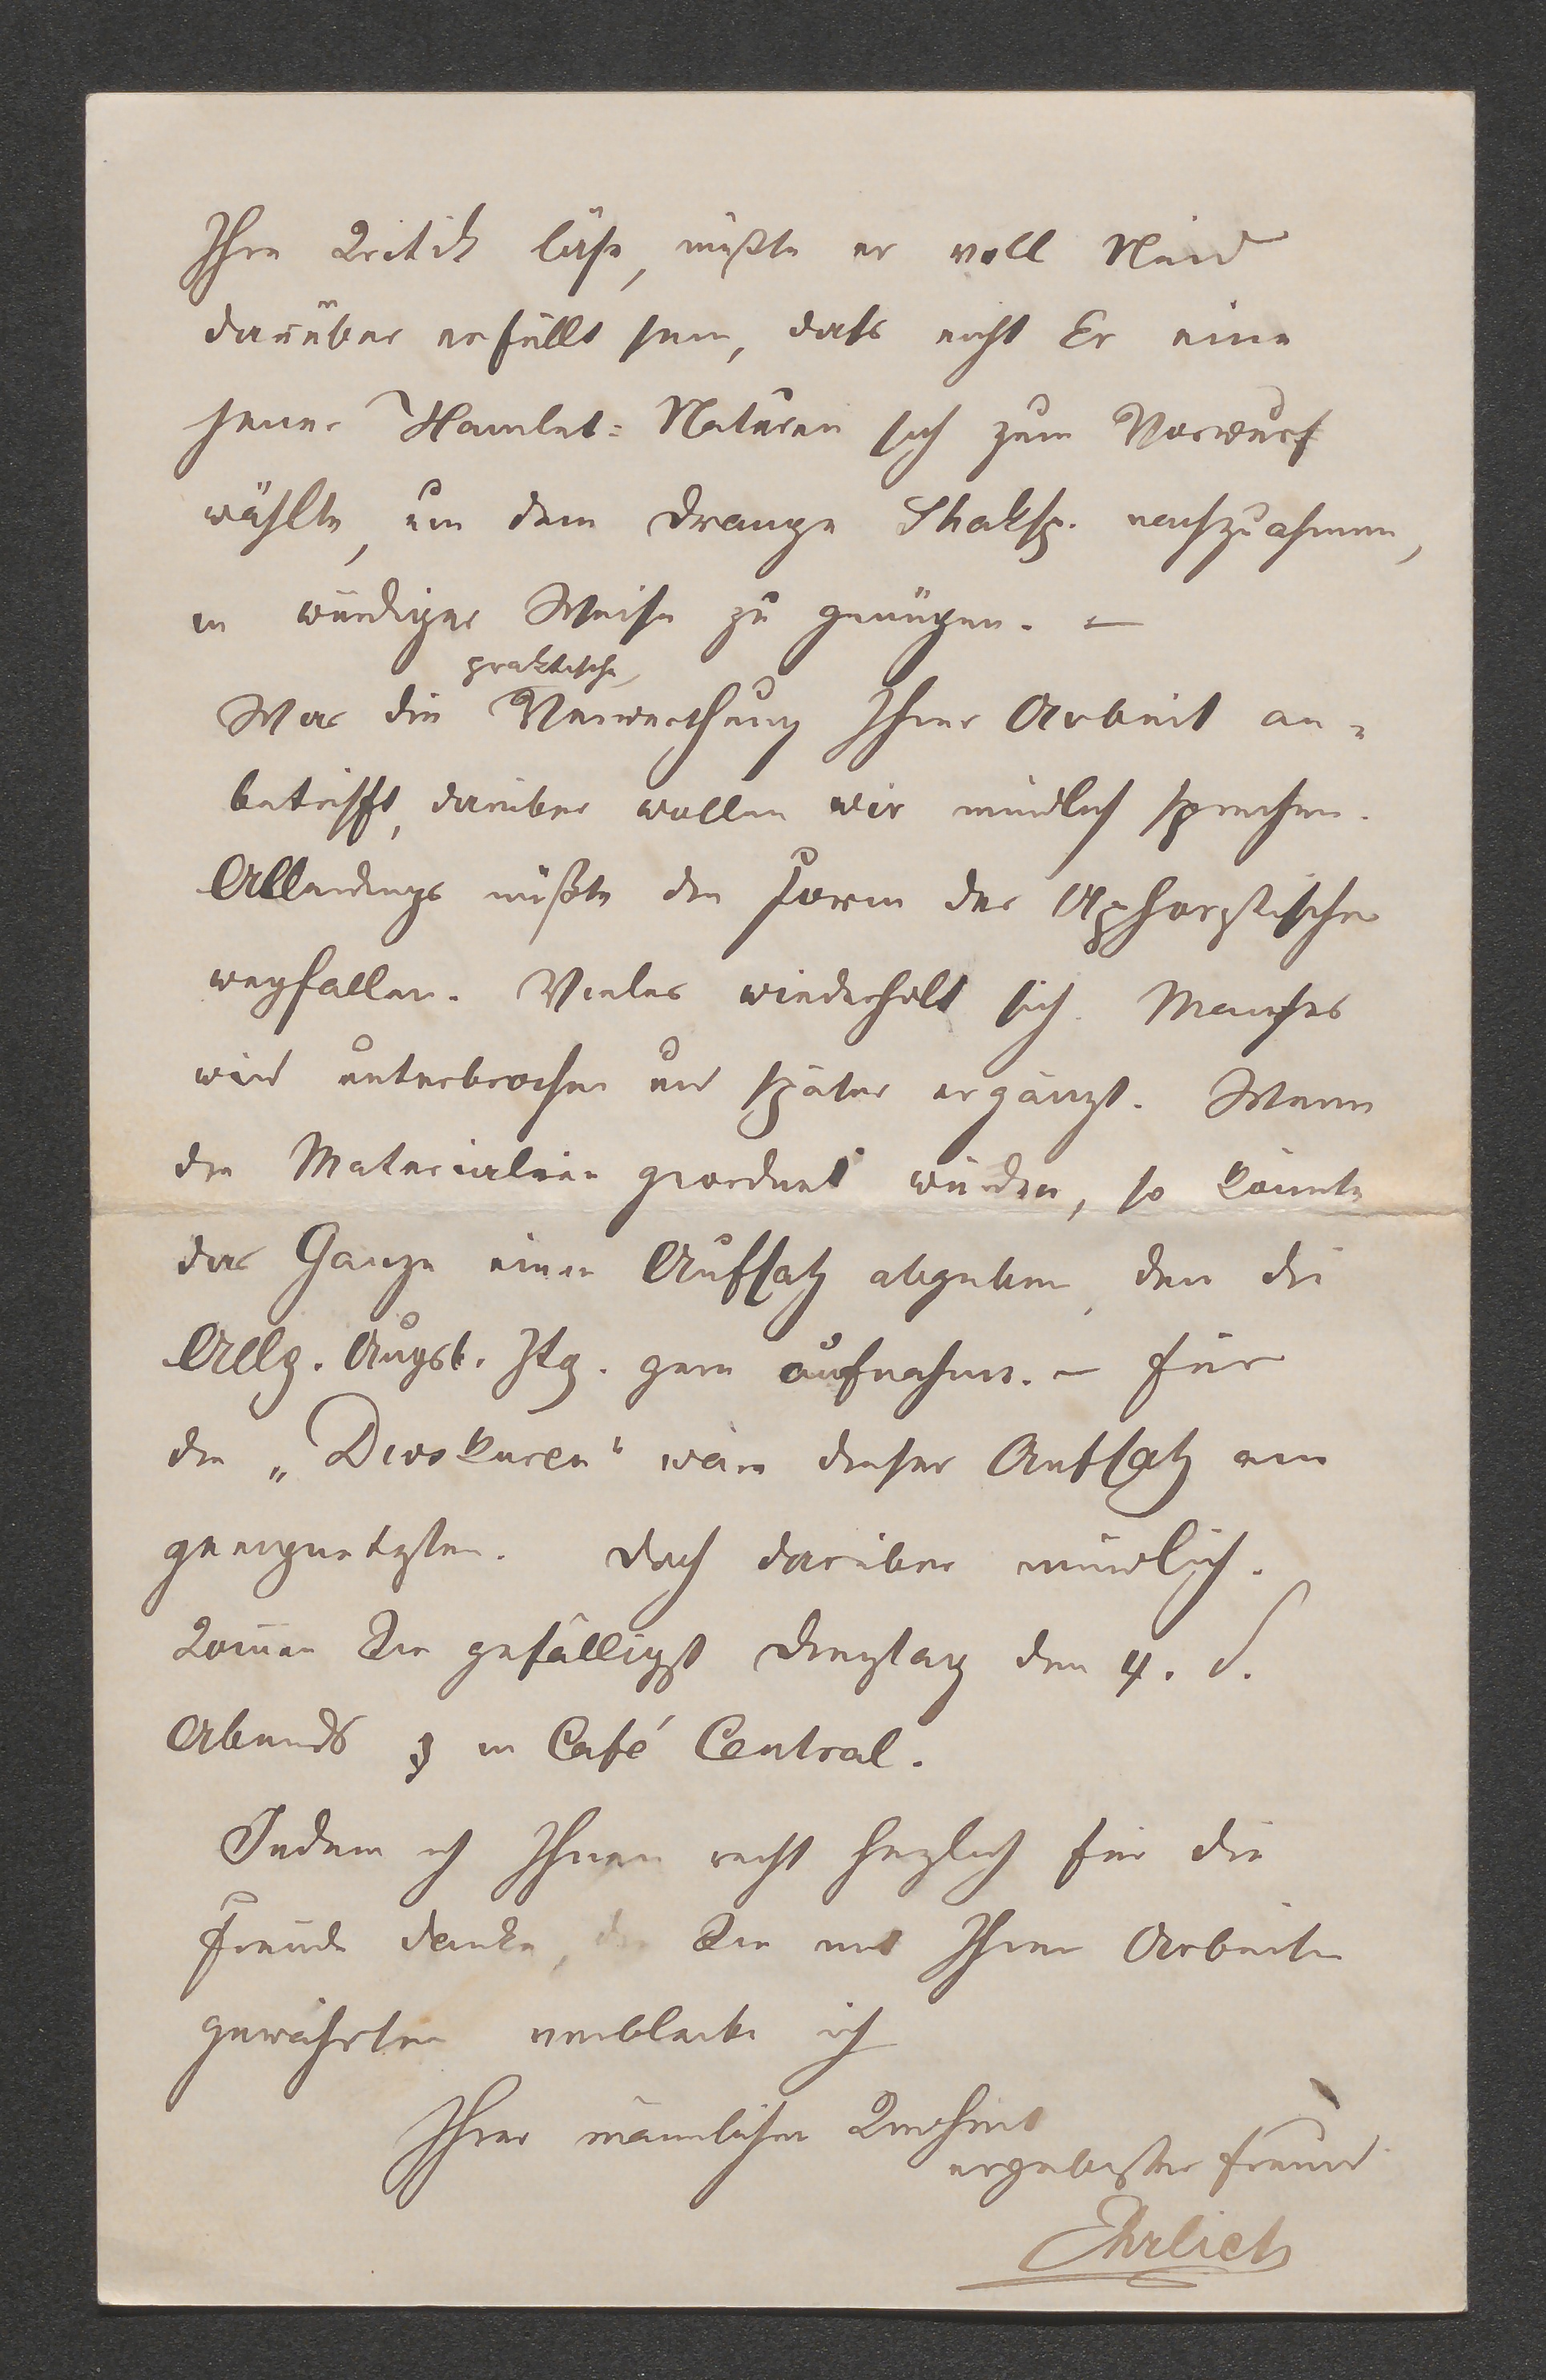 Ihre Kritik läse, müßte er voll Neid
darüber erfüllt sein, dass nicht Er eine
jener Hamlet-Naturen sich zum Vorwurf
wählte, um dem Drange Shaksp. nachzuahmen,
in würdiger Weise zu genügen. –
praktische
Was die Verwerthung Ihrer Arbeit an-
betrifft, darüber wollen wir mündlich sprechen.
Allerdings müßte die Form des Aphoristischen
wegfallen. Vieles wiederholt sich. Manches
wird unterbrochen und später ergänzt. Wenn
die Materialien geordnet würden, so könnte
das Ganze einen Aufsatz abgeben, den die
Allg. Augsb. Ztg. gern aufnähme. – Für
die „Dioskuren“ wäre dieser Aufsatz am
geeignetesten. Doch darüber mündlich.
Kommen Sie gefälligst Dienstag den 4. d.
Abends in Café Central.
Indem ich Ihnen recht herzlich für die
Freude danke, die Sie mit Ihren Arbeiten
gewährten verbleibe ich
Ihrer männlichen
ergebenster Freund
Ehrlich